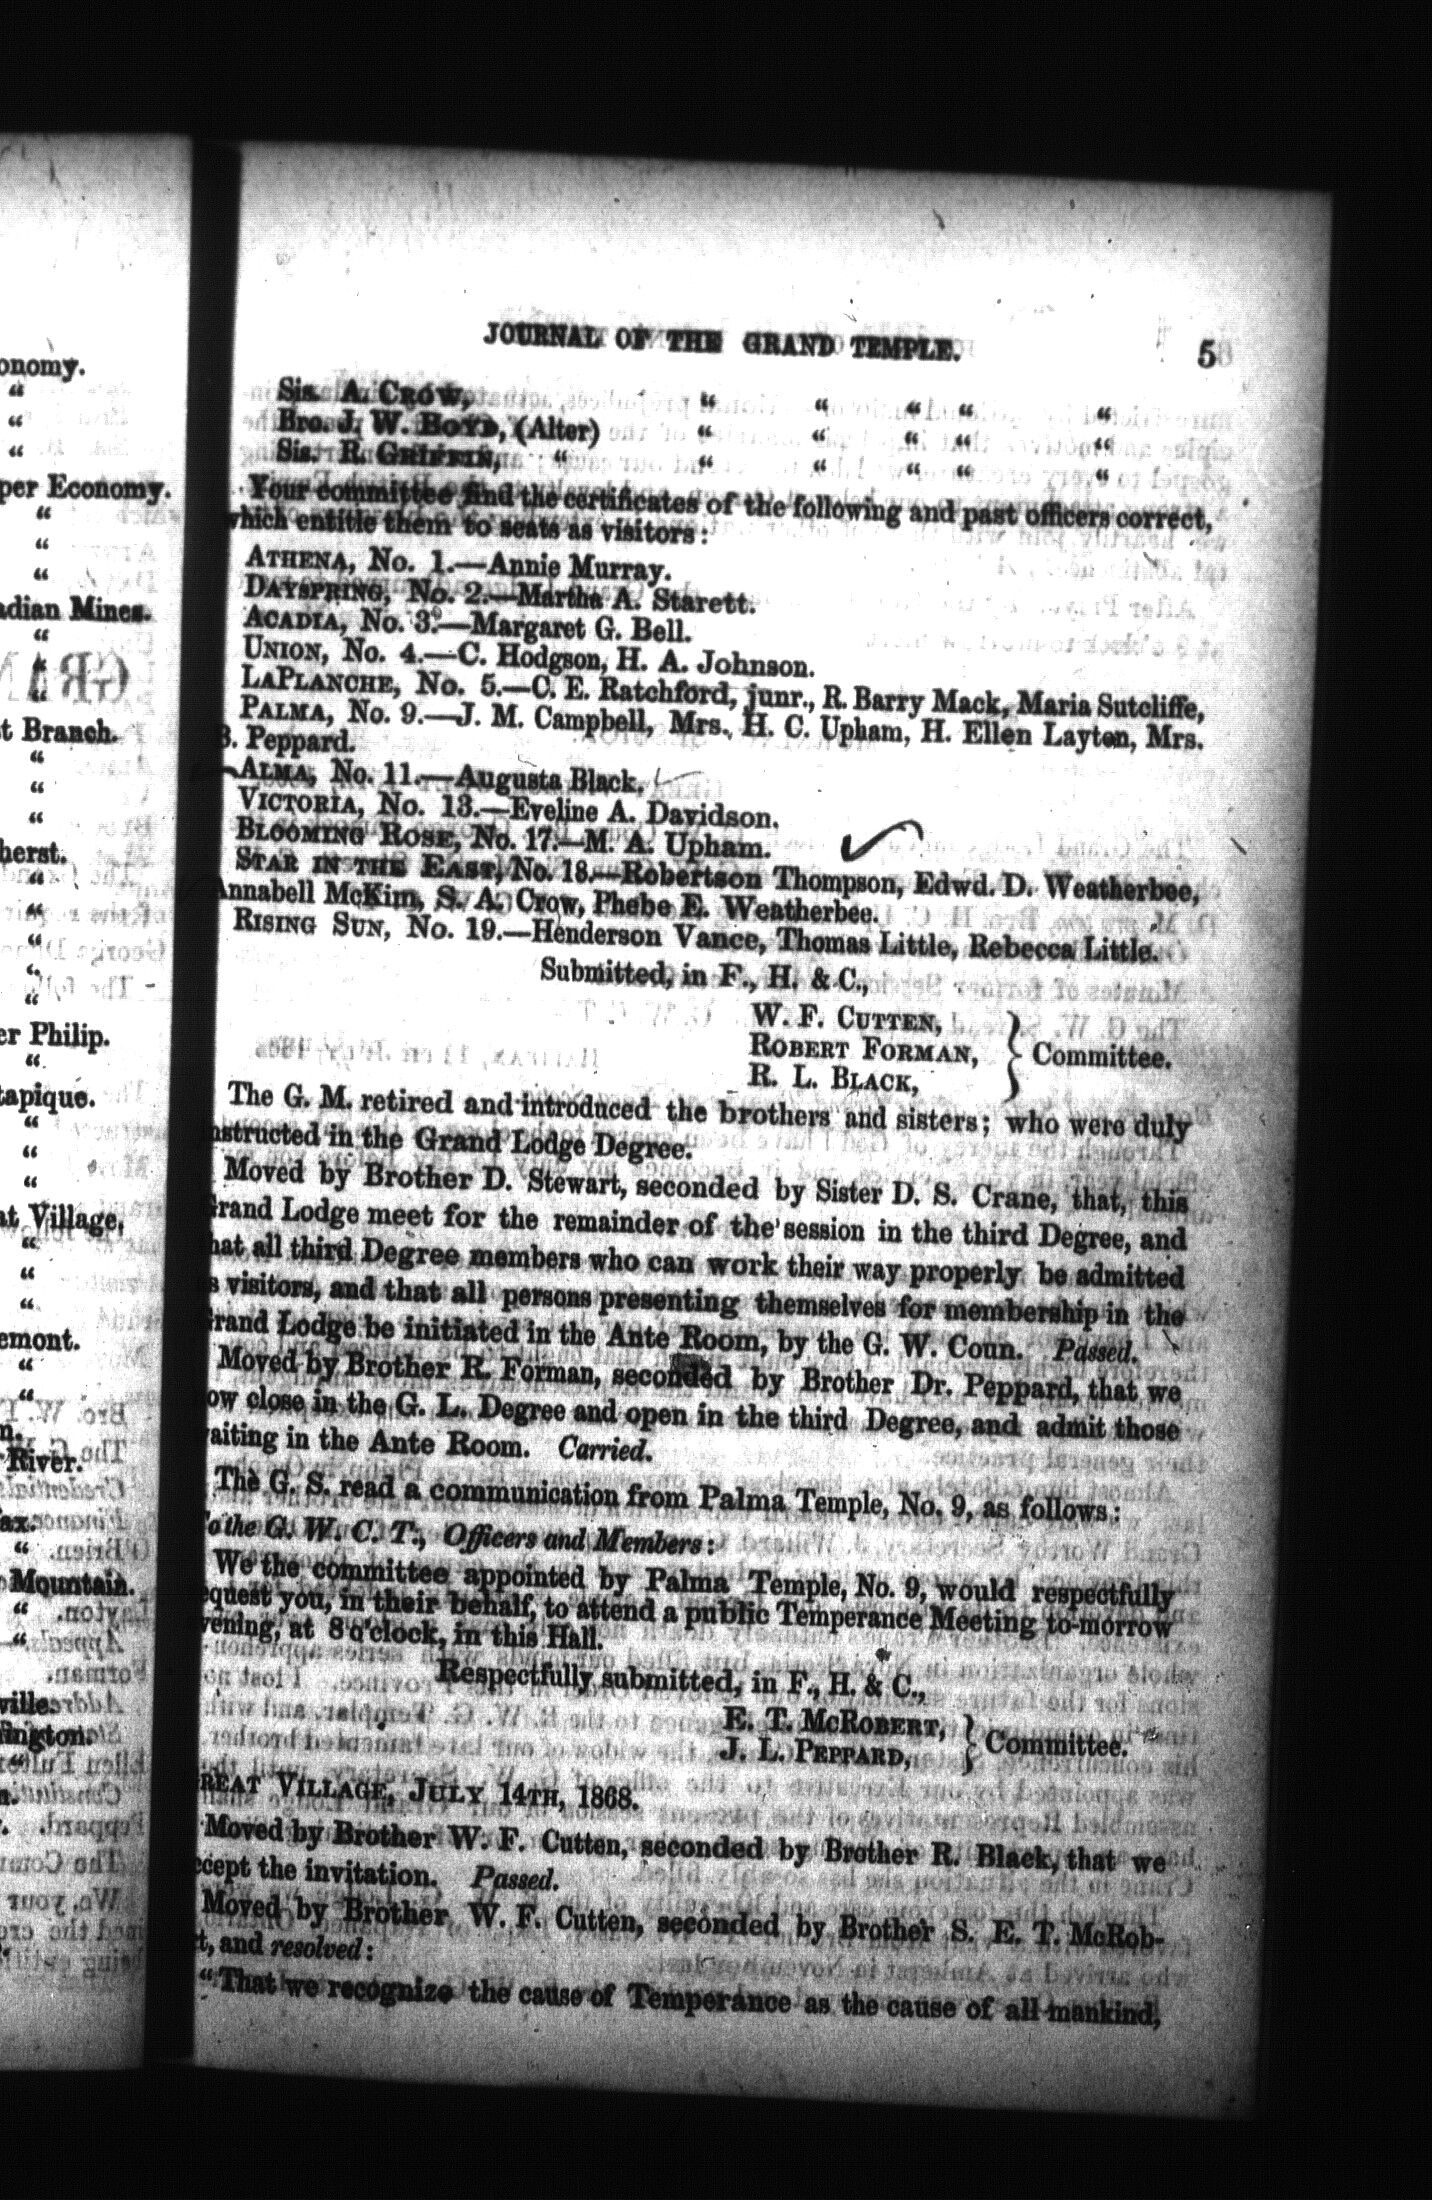 onomy.
"
"
"
per Economy.
"
"
"
adian Mines.
"
"
"
t Branch.
"
"
"
herst.
"
"
"
"
"
er Philip.
"
tapique.
"
"
"
at Village,
"
"
"
emont.
"
"
n.
River.
ax.
"
Mountain.
"
"
ville.
ington.
"
n.
JOURNAL OF THE GRAND TEMPLE. 5
Sis. A. CROW, " " " " "
Bro. J. W. BOYD, (Alter) " " " " "
Sis. R. GRIFFIN, " " " " " "
Your committee find the certificates of the following and past officers correct,
which entitle them to seats as visitors:
ATHENA, No. 1.—Annie Murray.
DAYSPRING, No. 2.—Martha A. Starett.
ACADIA, No. 3.—Margaret G. Bell.
UNION, No. 4.—C. Hodgson, H. A. Johnson.
LAPLANCHE, No. 5.—C. E. Ratchford, junr., R. Barry Mack, Maria Sutcliffe,
PALMA, No. 9.—J. M. Campbell, Mrs. H. C. Upham, H. Ellen Layton, Mrs.
B. Peppard.
ALMA, No. 11.—Augusta Black.
VICTORIA, No. 13.—Eveline A. Davidson.
BLOOMING ROSE, No. 17.—M. A. Upham.
STAR IN THE EAST, No. 18.—Robertson Thompson, Edwd. D. Weatherbee,
Annabell McKim, S. A. Crow, Phebe E. Weatherbee.
RISING SUN, No. 19.—Henderson Vance, Thomas Little, Rebecca Little.
Submitted, in F., H. & C.,
W. F. CUTTEN,
ROBERT FORMAN, } Committee.
R. L. BLACK,
The G. M. retired and introduced the brothers and sisters; who were duly
nstructed in the Grand Lodge Degree.
Moved by Brother D. Stewart, seconded by Sister D. S. Crane, that, this
Grand Lodge meet for the remainder of the session in the third Degree, and
hat all third Degree members who can work their way properly be admitted
s visitors, and that all persons presenting themselves for membership in the
Grand Lodge be initiated in the Ante Room, by the G. W. Coun. Passed.
Moved by Brother R. Forman, seconded by Brother Dr. Peppard, that we
ow close in the G. L. Degree and open in the third Degree, and admit those
aiting in the Ante Room. Carried.
The G. S. read a communication from Palma Temple, No. 9, as follows:
To the G. W. C. T., Officers and Members:
We the committee appointed by Palma Temple, No. 9, would respectfully
equest you, in their behalf, to attend a public Temperance Meeting to-morrow
vening, at 8 o'clock, in this Hall.
Respectfully submitted, in F., H. & C.,
E. T. MCROBERT, } Committee.
J. L. PEPPARD,
REAT VILLAGE, JULY 14TH, 1868.
Moved by Brother W. F. Cutten, seconded by Brother R. Black, that we
ccept the invitation. Passed.
Moved by Brother W. F. Cutten, seconded by Brother S. E. T. McRob-
t, and resolved:
"That we recognize the cause of Temperance as the cause of all mankind,